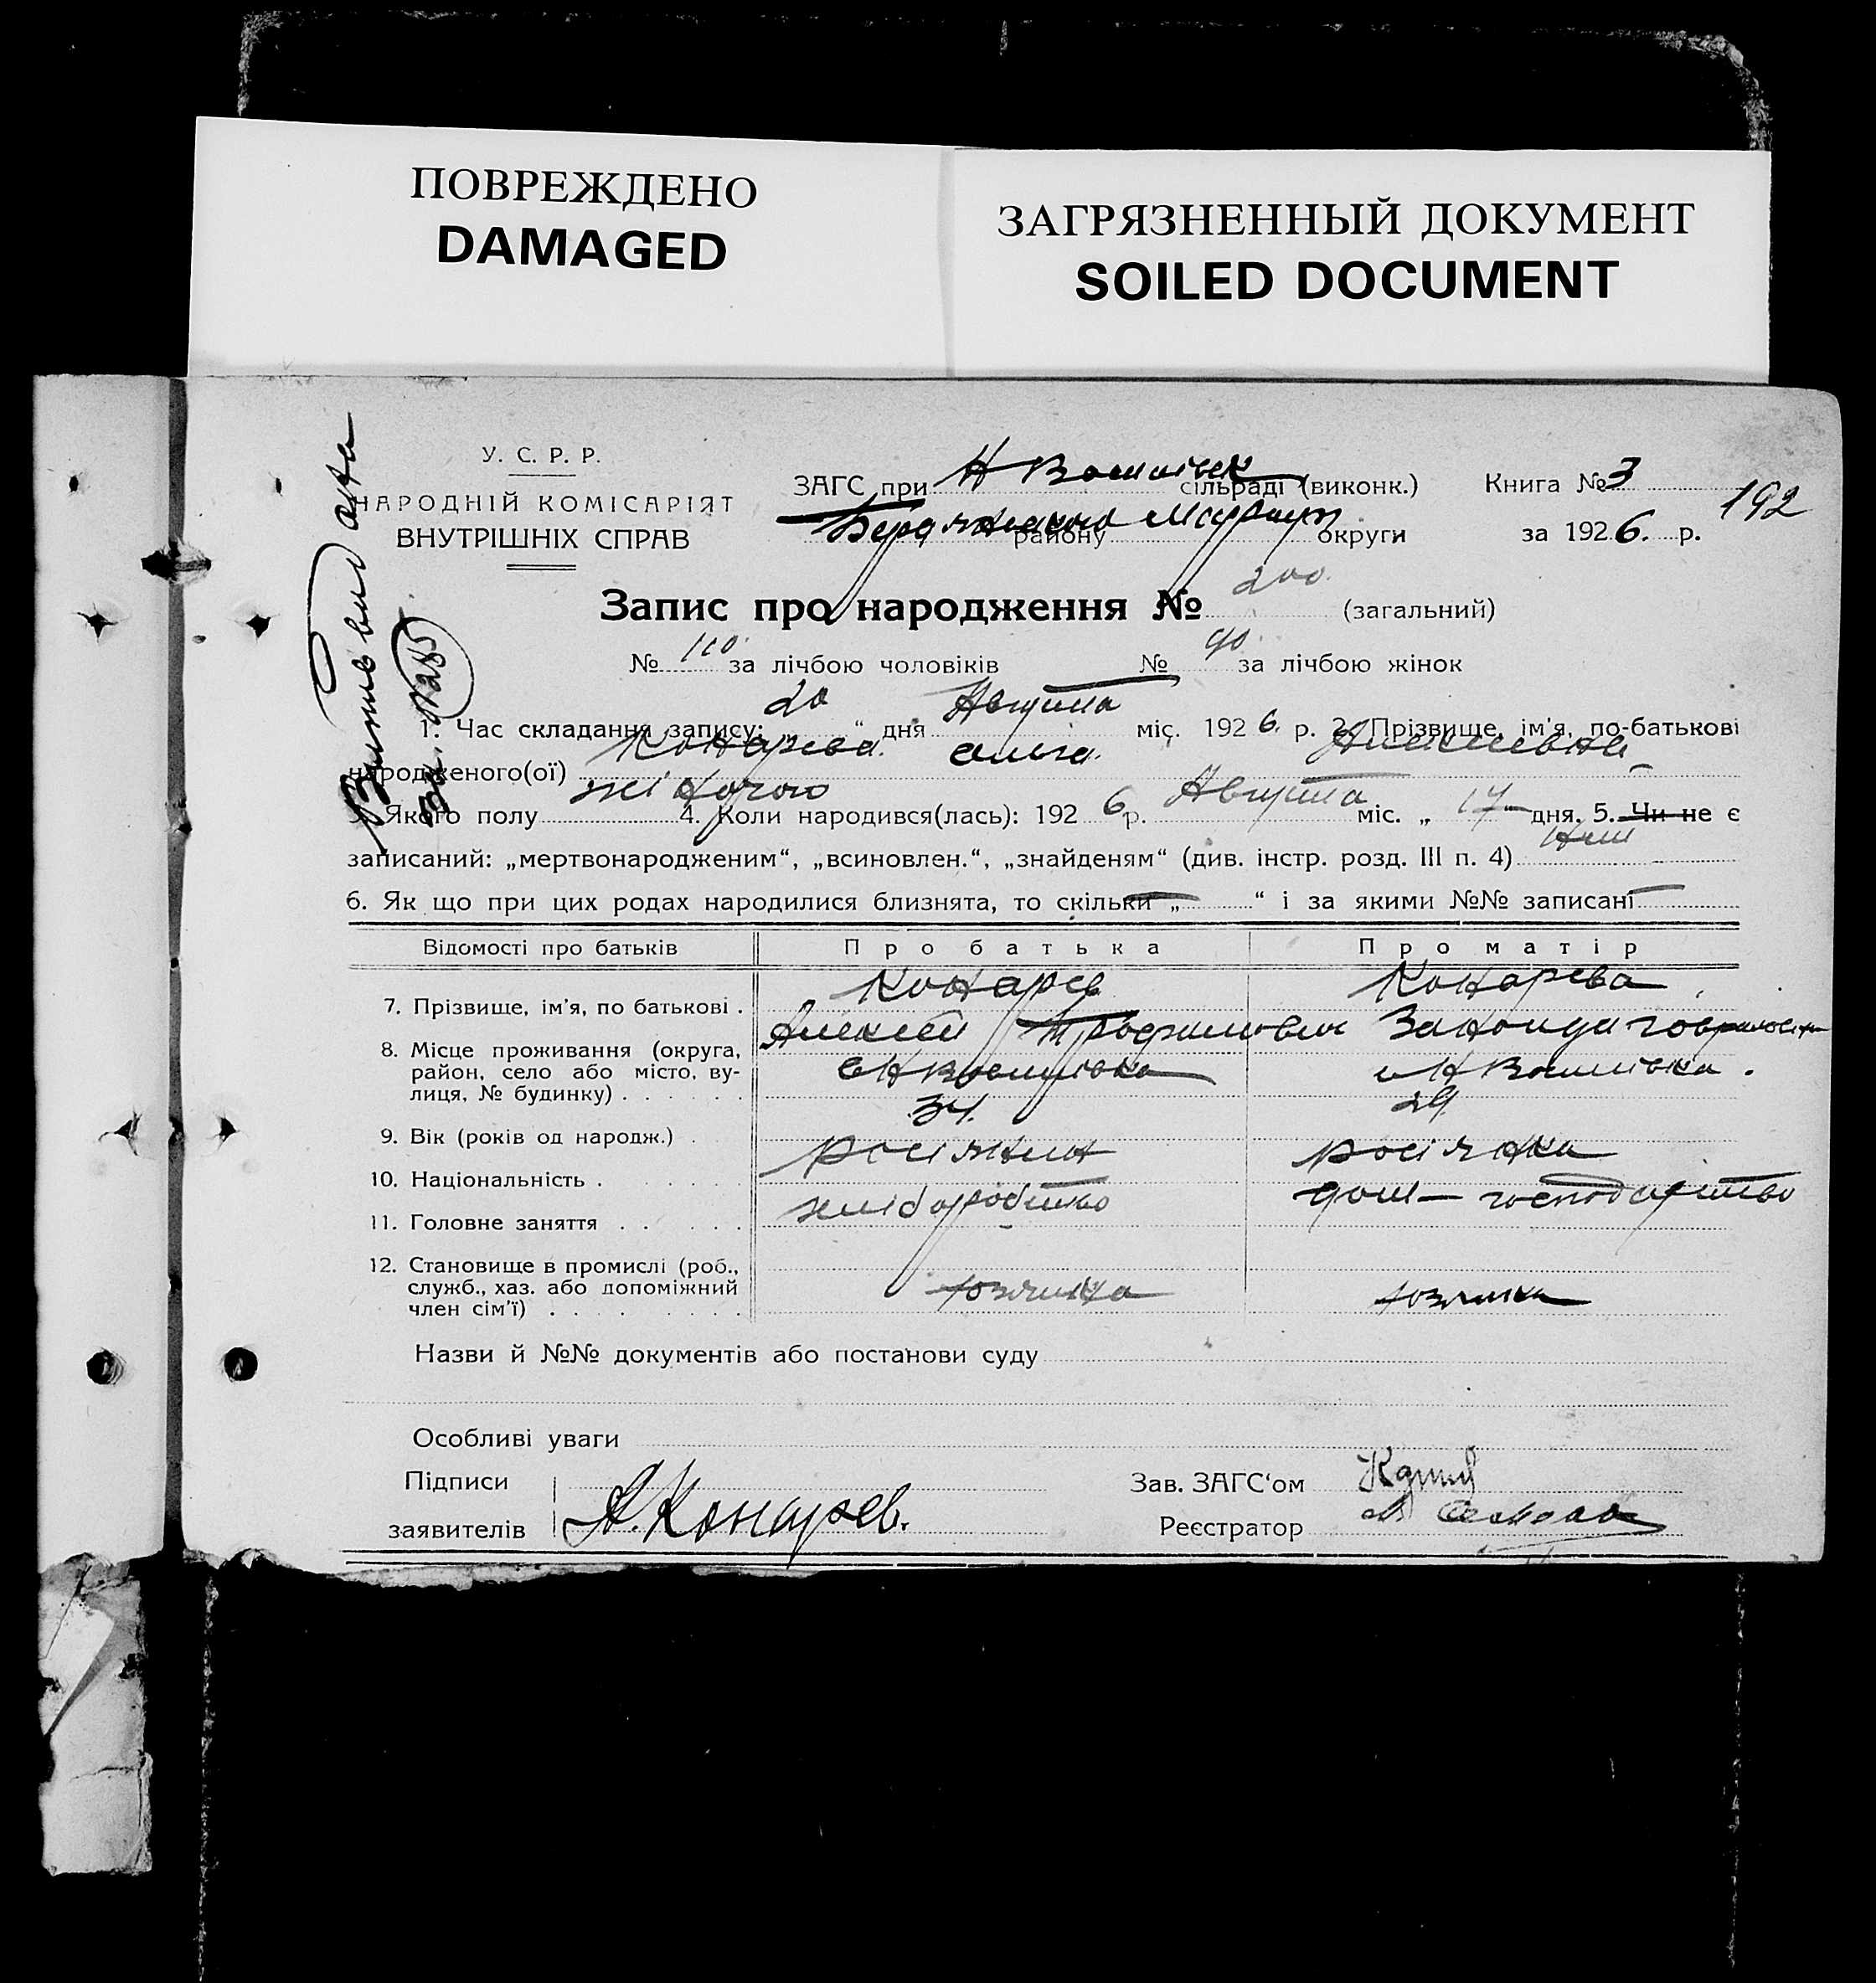 ПОВРЕЖДЕНО
DAMAGED
ЗАГРЯЗНЕННЫЙ ДОКУМЕНТ
SOILED DOCUMENT
У. С. Р. Р.
НАРОДНІЙ КОМІСАРІЯТ
ВНУТРІШНІХ СПРАВ
ЗАГС при сільраді (виконк.)
району округи
Книга № 3
192
за 1926. р.
Запис про народження № 200. (загальний)
№ 110. за лічбою чоловіків № 90. за лічбою жінок
1. Час складання запису: 20 " дня Августа міс. 1926. р. 2. Прізвище, ім'я, по-батькові
народженого(ої) Конарева. Ольга.
3. Якого полу жіночого 4. Коли народився(лась): 1926 р. Августа міс. „ 17 дня. 5. Чи не є
записаний: „мертвонародженим“, „всиновлен.“, „знайденям“ (див. інстр. розд. III п. 4)
6. Як що при цих родах народилися близнята, то скільки „ “ і за якими №№ записані
Відомості про батьків Про батька Про матір
7. Прізвище, ім'я, по батькові . Конарев Конарева
Алексей Трофимович
8. Місце проживання (округа,
район, село або місто, ву-
лиця, № будинку) . . . . . .
9. Вік (років од народж.) . 34. 29
10. Національність . росіянин росіянка
11. Головне заняття . . . . . хліборобство дом— господарство
12. Становище в промислі (роб.,
служб., хаз. або допоміжний
член сім'ї) . . . . . . .
Назви й №№ документів або постанови суду
Особливі уваги
Підписи
заявителів А. Конарев.
Зав. ЗАГС‘ом
Реєстратор